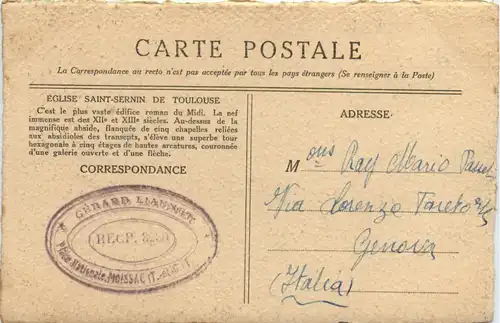 CARTE POSTALE
La Correspondance au recto n'est pas acceptée par tous les pays étrangers (Se renseigner à la Poste)
ÉGLISE SAINT-SERNIN DE TOULOUSE
C'est le plus vaste édifice roman du Midi. La nef
immense est des XIIe et XIIIe siècles. Au-dessus de la
magnifique abside, flanquée de cinq chapelles reliées
aux absidioles des transepts, s'élève une superbe tour
hexagonale à cinq étages de hautes arcatures, couronnée
d'une galerie ouverte et d'une flèche.
CORRESPONDANCE
GÉRARD
RECP.
Place Nationale, MOISSAC
ADRESSE
Mous Rag Mario
Via Lorenzo Pareto
Genova
(Italia)